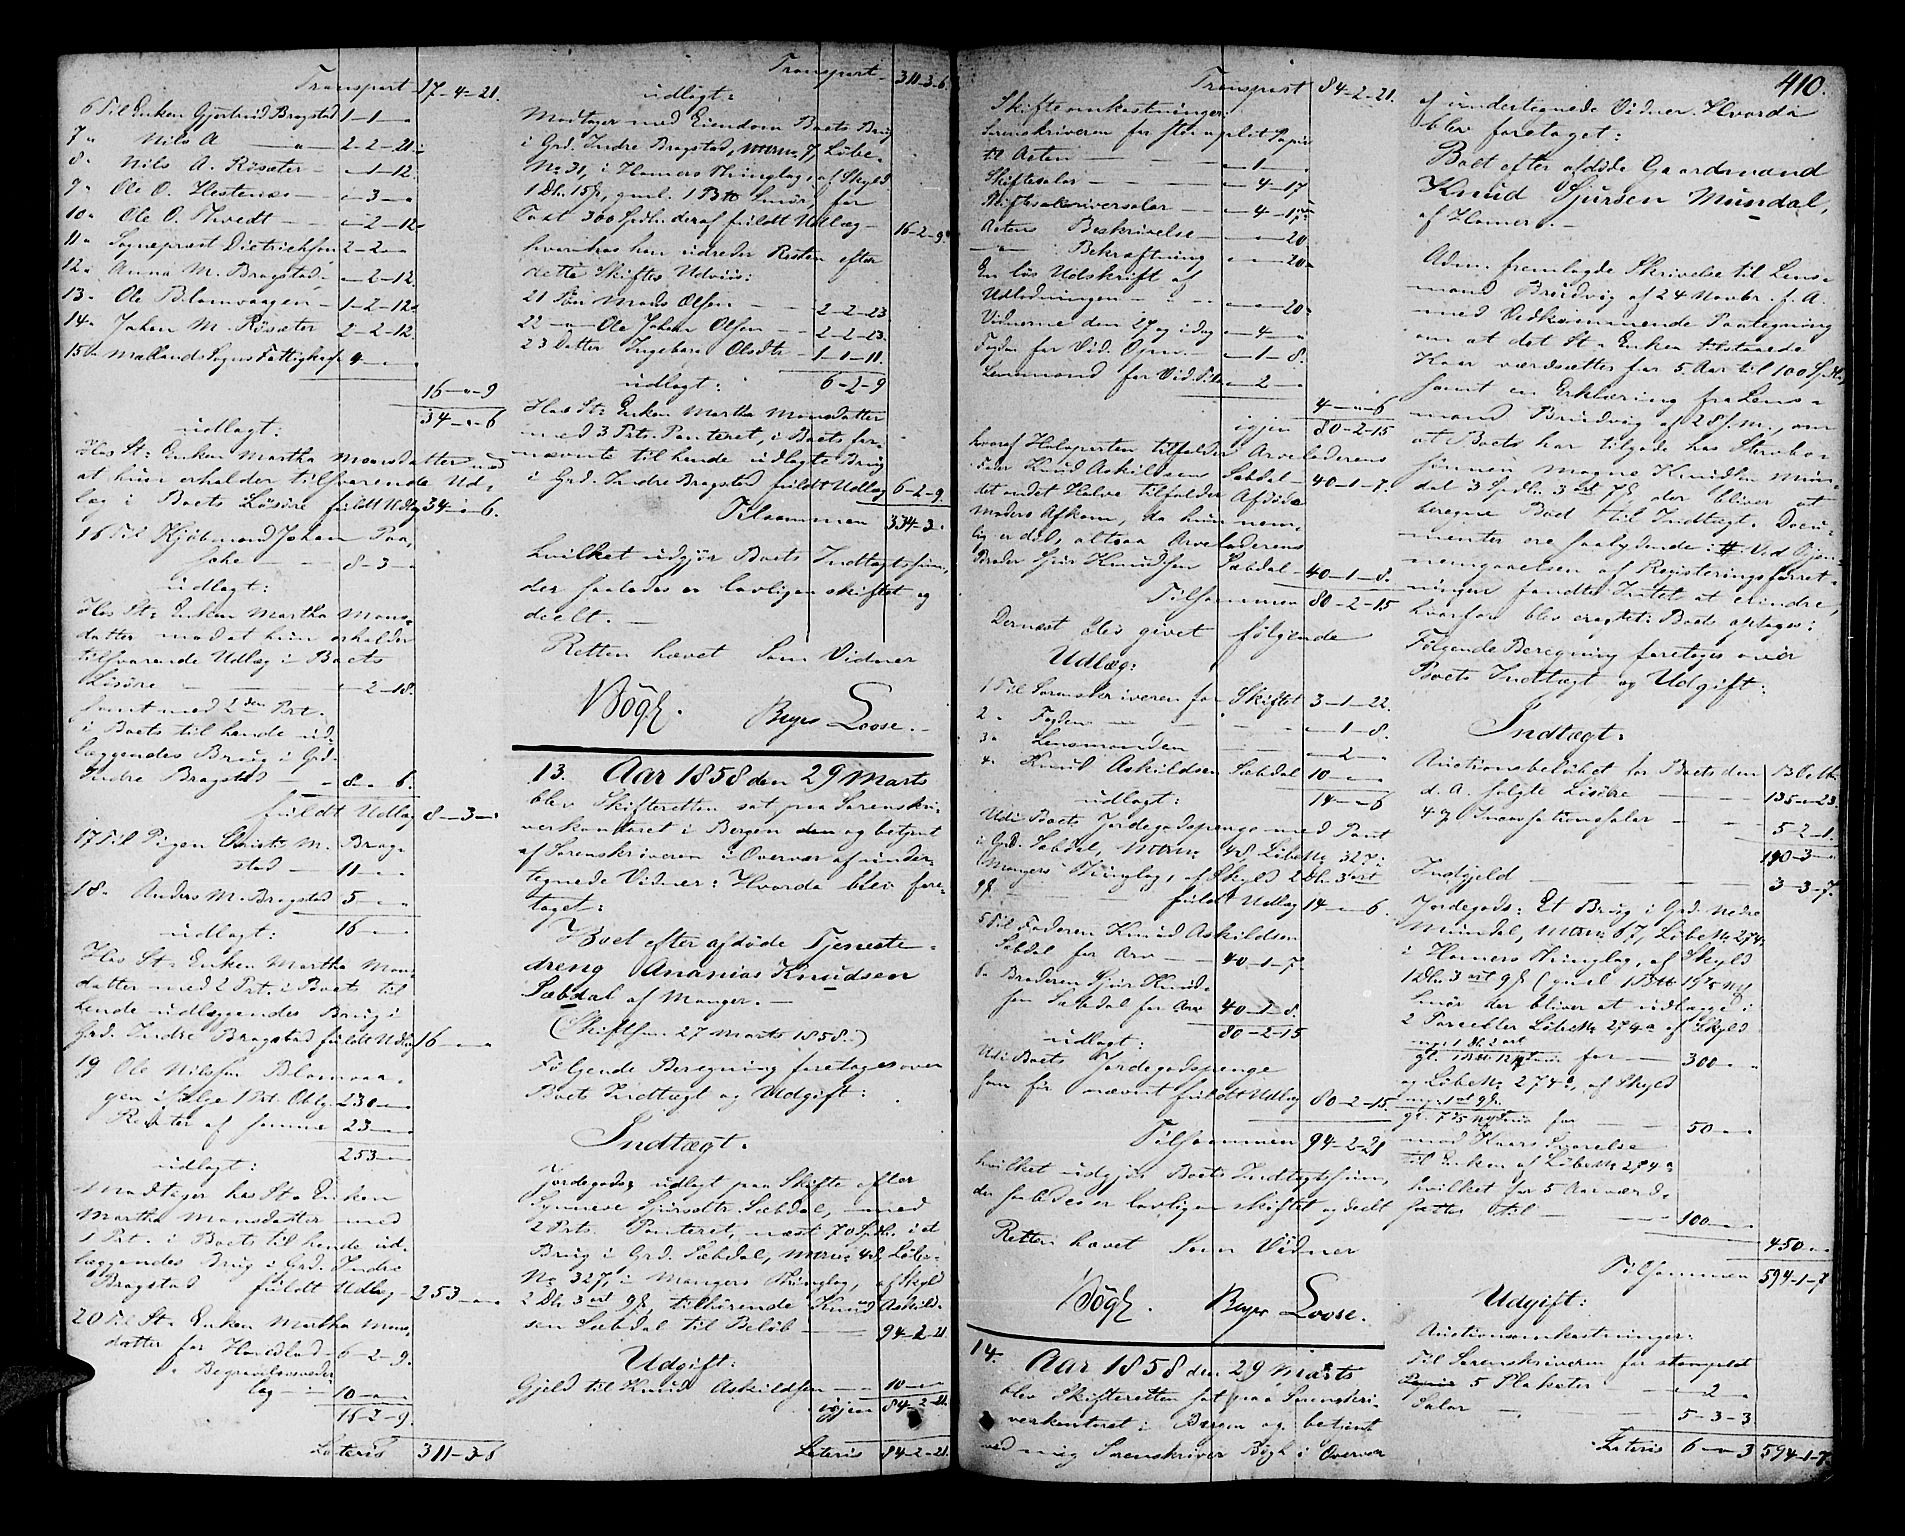 Transport 17-4-21.
6 Til Enken Gjertrud Bragstad 1-1-"
7 " Nils A — " — 2-2-21
8 " Nils A. Røsæter - "-1-12
9 " Ole O. Hestenes - "-3-"
10 " Ole O. Tvedt - "-2-12
11 " Sogneprest Dietrichsen 2-2-"
12 " Anna M. Bragstad - "-2-12
13 " Ole Blomvaagen - 1-2-12
14 " Johan M. Røsæter 2-2-12
15 " Mællands Sogns Fattigkasse 4-"-"
16-"-9
34-"-6
udlagt:
Hos St: Enken Martha Monsdatter med
at hun erholder tilsvarende Ud-
læg i Boets Løsøre fuldt Udlæg 34-"-6.
16 Til Kjøbmand Johan
8-3-"
udlagt:
Hos St: Enken Martha Mons-
datter med at hun erholder
tilsvarende Udlæg i Boets
Løsøre "-2-18.
samt med 2den Prt.
i Boets til hende ud-
læggendes Brug i Grd.
Indre Bragstad 8-"-6.
fuldt Udlæg 8-3-"
17 Til Pigen M. Brag-
stad 11-"-"
18 " Anders M. Bragstad 5-"-"
udlagt: 16-"-"
Hos St: Enken Martha Mons-
datter med 2 Prt. i Boets til
hende udlæggendes Brug i
Grd. Indre Bragstad fuldt Udlæg 16-"-"
19 Ole Nilssen Blomvaa-
gen ifølge 1 Prt. Oblg. 230-"-"
Renter af samme 23-"-"
253-"-"
udlagt:
Modtager hos St: Enken
Martha Monsdatter med
1 Prt. i Boets til hende ud-
læggendes Brug i Grd. Indre
Bragstad fuldt Udlæg - 253-"-"
20 Til St: Enken Martha Mons-
datter for Hovedlod - 6-2-9.
" Begravelsesudlæg
10-"-"
16-2-9.
Lateris 311-3-6
Transport - 311-3-6
udlagt:
Modtager med Eiendom Boets Brug
i Grd. Indre Bragstad, Matr.No 7, Løbe-
No 31, i Hammers Thinglag, af Skyld
1 Dlr. 15 ß, gml. 1 Smør, for
Taxt 300 Spdlr. deraf fuldt Udlæg - 16-2-9.
hvorhos han udreder Resten efter
dette Skiftes Udviis:
21 Søn Mons Olsen - 2-2-23
22 " Ole Johan Olsen - 2-2-23.
23 Datter Ingebor Olsdtr - 1-1-11.
udlagt: 6-2-9
Hos St: Enken Martha Monsdatter
med 3 Prt. Panteret, i Boets for-
nævnte til hende udlagte Brug
i Grd. Indre Bragstad fuldt Udlæg 6-2-9.
Tilsammen 334-3-"
hvilket udgjør Boets Indtægtssum,
der saaledes er lovligen skiftet og
deelt. —
Retten hævet Som Vidner
Bøgh. Beyer Loose. —
13. Aar 1858 den 29 Marts
blev Skifteretten sat paa Sorenskri-
verkontoret i Bergen den og betjent
af Sorenskriveren i Overvær af under-
tegnede Vidner: Hvorda blev fore-
taget:
Boet efter afdøde Tjeneste-
dreng Ananias Knudsen
Sæbdal af Manger. —
(Skiftsm. 27 Marts 1858.)
Følgende Beregning foretages over
Boets Indtægt og Udgift:
Indtægt.
Jordegods, udlagt paa Skifte efter
Synneve Sjursdtr. Sæbdal, med
2 Prt. Panteret, næst 70 Spdlr. i et
Brug i Grd. Sæbdal, Matr.No 48, Løbe-
No 327, i Mangers Thinglag, af Skyld
2 Dlr. 3 ort 9 ß, tilhørende Knud Askild-
sen Sæbdal til Beløb — — 94-2-21
Udgift:
Gjeld til Knud Askildsen — 10-"-"
igjen 84-2-21.
Lateris 84-2-21.
410.
Transport 84-2-21.
Skifteomkostninger:
Sorenskriveren for stemplet Papir
til Acten - "-1-"
Skiftesalær - - "-4-17
Skifteskriversalær - "-4-17
Actens Beskrivelse - "-"-20
— " — Bekræftning "-"-20
En løs Udskrift af
Udlodningen - - "-"-20
Vidnerne den 27 og i dag "-4-"
Fogden for Vid. Opn. - "-1-8.
Lensmand for Vid. "-2-"
4-"-6
igjen 80-2-15
hvoraf Halvparten tilfalder Arveladerens
Fader Knud Askildsens Sæbdal - 40-1-7.
det andet Halve tilfalder Afdøde
Moders Afkom, da hun nem-
lig er død, altsaa Arveladerens
Broder Sjur Knudsen Sæbdal - 40-1-8.
Tilsammen 80-2-15
Dernæst blev givet følgende
Udlæg:
1 Til Sorenskriveren for Skiftet 3-1-22.
2 " Fogden — — "-1-8.
3 " Lensmanden — "-2-"
4 " Knud Askildsen Sæbdal 10-"-"
udlagt: 14-"-6
Udi Boets Jordegodspenge med Pant
i Grd. Sæbdal, Matr.No 48, LøbeNo 327,
Mangers Thinglag, af Skyld 2 Dlr. 3 ort
9 ß. — — fuldt Udlæg 14-"-6.
5 Til Faderen Knud Askildsen
Sæbdal for Arv — 40-1-7
6 " Broderen Sjur Knud-
sen Sæbdal for Arv 40-1-8.
udlagt: 80-2-15
Udi Boets Jordegodspenge
som før nævnt fuldt Udlæg 80-2-15
Tilsammen 94-2-21
hvilket udgjør Boets Indtægtssum,
der saaledes er lovligen skiftet og deelt
Retten hævet Som Vidner
Bøgh. Beyer Loose.
14. Aar 1858 den 29 Marts
blev Skifteretten sat paa Sorenskri-
verkontoret i Bergen og betjent
ved mig Sorenskriver Bøgh i Overvær
af undertegnede Vidner. Hvorda
blev foretaget:
Boet efter afdøde Gaardmand
Knud Sjursen Mundal,
af Hammer. —
Adm. fremlagde Skrivelse til Lens-
mand Brudvig af 24 Novbr. f. A.
med Vedkommende Paategning
om at det St: Enken tilstaaede
Kaar værdsættes for 5 Aar til 100 Spdlr,
samt en Erklæring fra Lens-
mand Brudvig af 28 f. M., om
at Boets har tilgode hos Stervbo-
sønnen Mogns Knudsen Mun-
dal 3 Spdlr. 3 ort 7 ß. der bliver at
beregne Boet til Indtægt. Docu-
menter ere saalydende: # Ved Gjen-
nemgaaelsen af Registreringsforret-
ninger fandtes Intet at erindre,
hvorfor blev eragtet: Boets optages:
Følgende Beregning foretages over
Boets Indtægt og Udgift:
Indtægt:
Auctionsbeløbet for Boets den
d. A. solgte Løsøre — — 135-"-23.
4 % Incassationssalær — — 5-2-1.
140-3-"
Indgjeld — — 3-3-7.
Jordegods: Et Brug i Grd. Nedre
Mundal, Matr.No 67, LøbeNo 274
i Hammers Thinglag, af Skyld
1 Dlr. 3 ort 9 ß (gml
Smør der bliver at udlægge i
2 Parceller LøbeNo 274a af Skyld
my: 1 Dlr. 2 ort
for — 300-"-"
og LøbeNo 274b, af Skyld
my: 1 ort 9 ß.
for — 50-"-"
med Kaars Svarelse
til Enken af LøbeNo 274a
hvilket for 5 Aar værd-
sættes til — — 100-"-"
450-"-"
Tilsammen 594-1-7
Udgift:
Auctionsomkostninger:
Til Sorenskriveren for stemplet
Papir 5 Plakater - "-2-"
Salær - 5-3-3.
Lateris 6-"-3 594-1-7